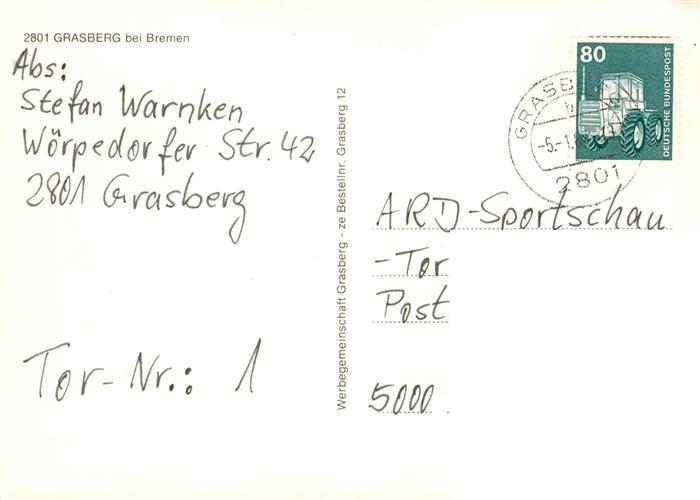 2801 GRASBERG bei Bremen
Abs:
Stefan Warnken
Wörpedorfer Str. 42
2801 Grasberg
Tor-Nr.: 1
Werbegemeinschaft Grasberg - ze Bestellnr. Grasberg 12
80
DEUTSCHE BUNDESPOST
2801
ARD-Sportschau
-Tor
Post
5000